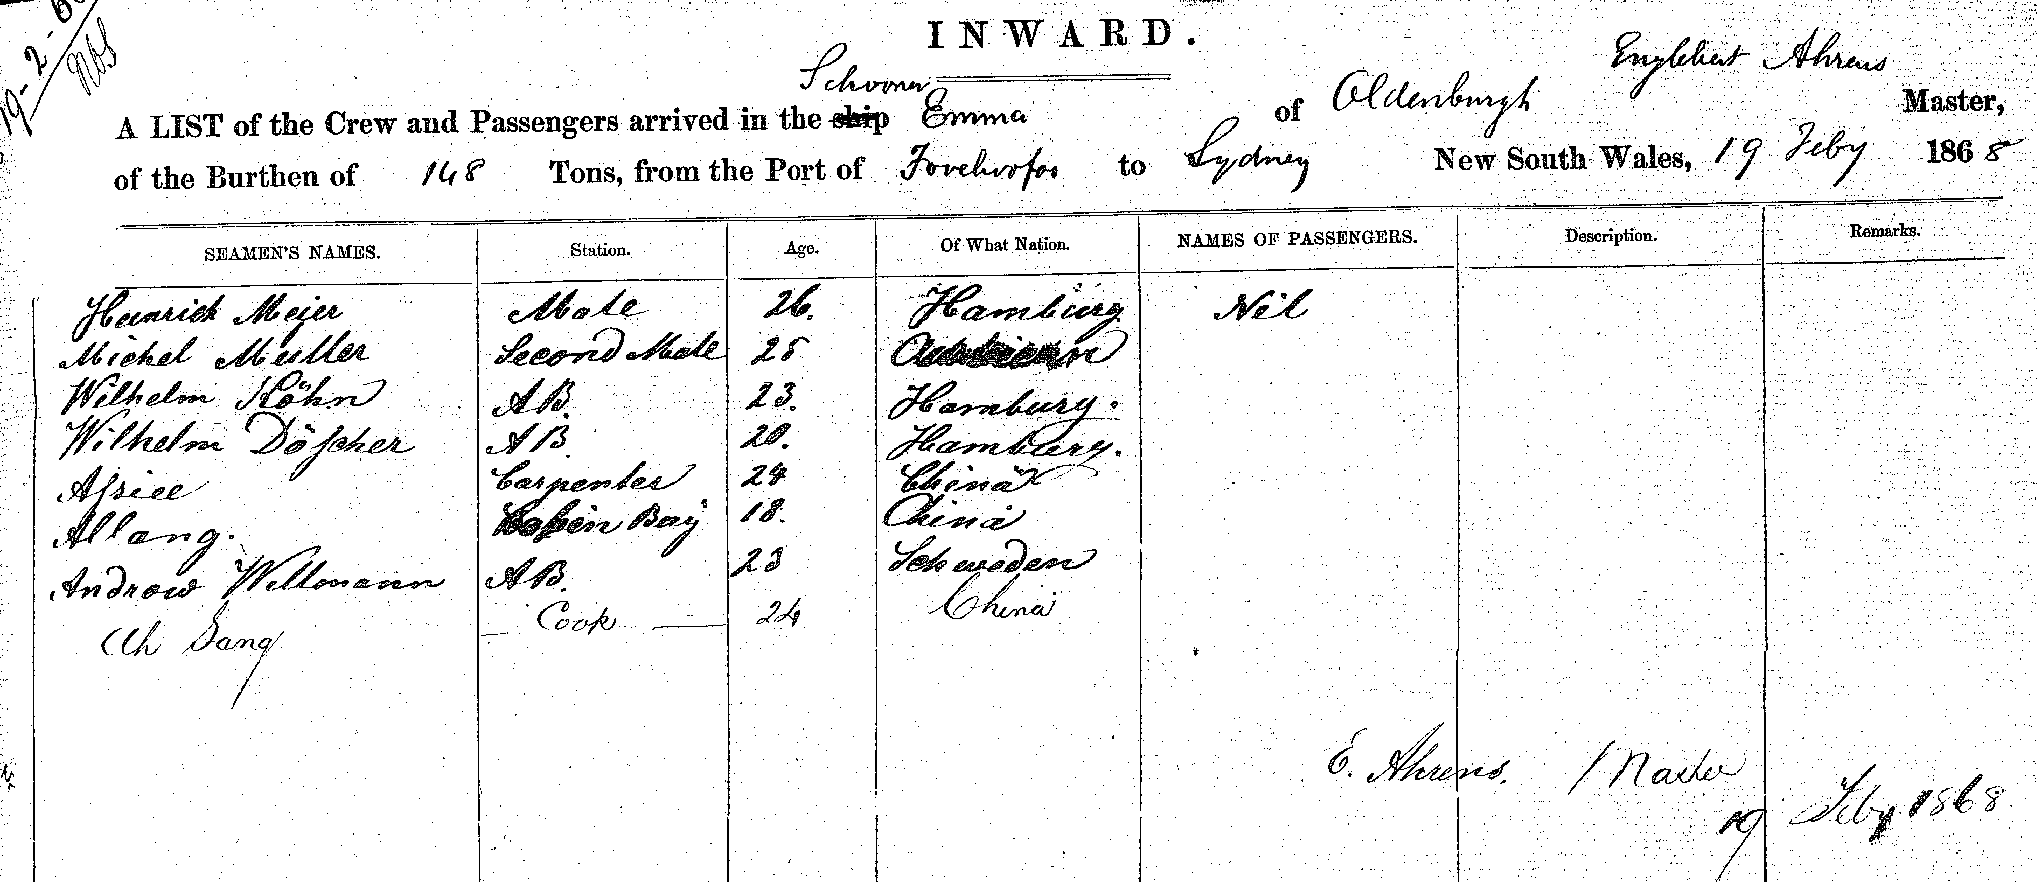 19-2-68
INWARD.
Schooner
Englebert Ahrens
A LIST of the Crew and Passengers arrived in the ship Emma of Oldenburgh Master,
of the Burthen of 148 Tons, from the Port of to Sydney New South Wales, 19 Feby 1868
SEAMEN'S NAMES. Station. Age. Of What Nation. NAMES OF PASSENGERS. Description. Remarks.
Heinrich Mejer Mate 26. Hamburg Nil
Michel Muller Second Mate 25
Wilhelm Köhn AB. 23. Hamburg.
Wilhelm Döscher AB. 20. Hamburg.
Carpenter 24 China
Allang. Boy 18. China
Androw Wellmann AB. 23 Schweden
Ah Sang Cook 24 China
E. Ahrens. Master
19 Feby 1868